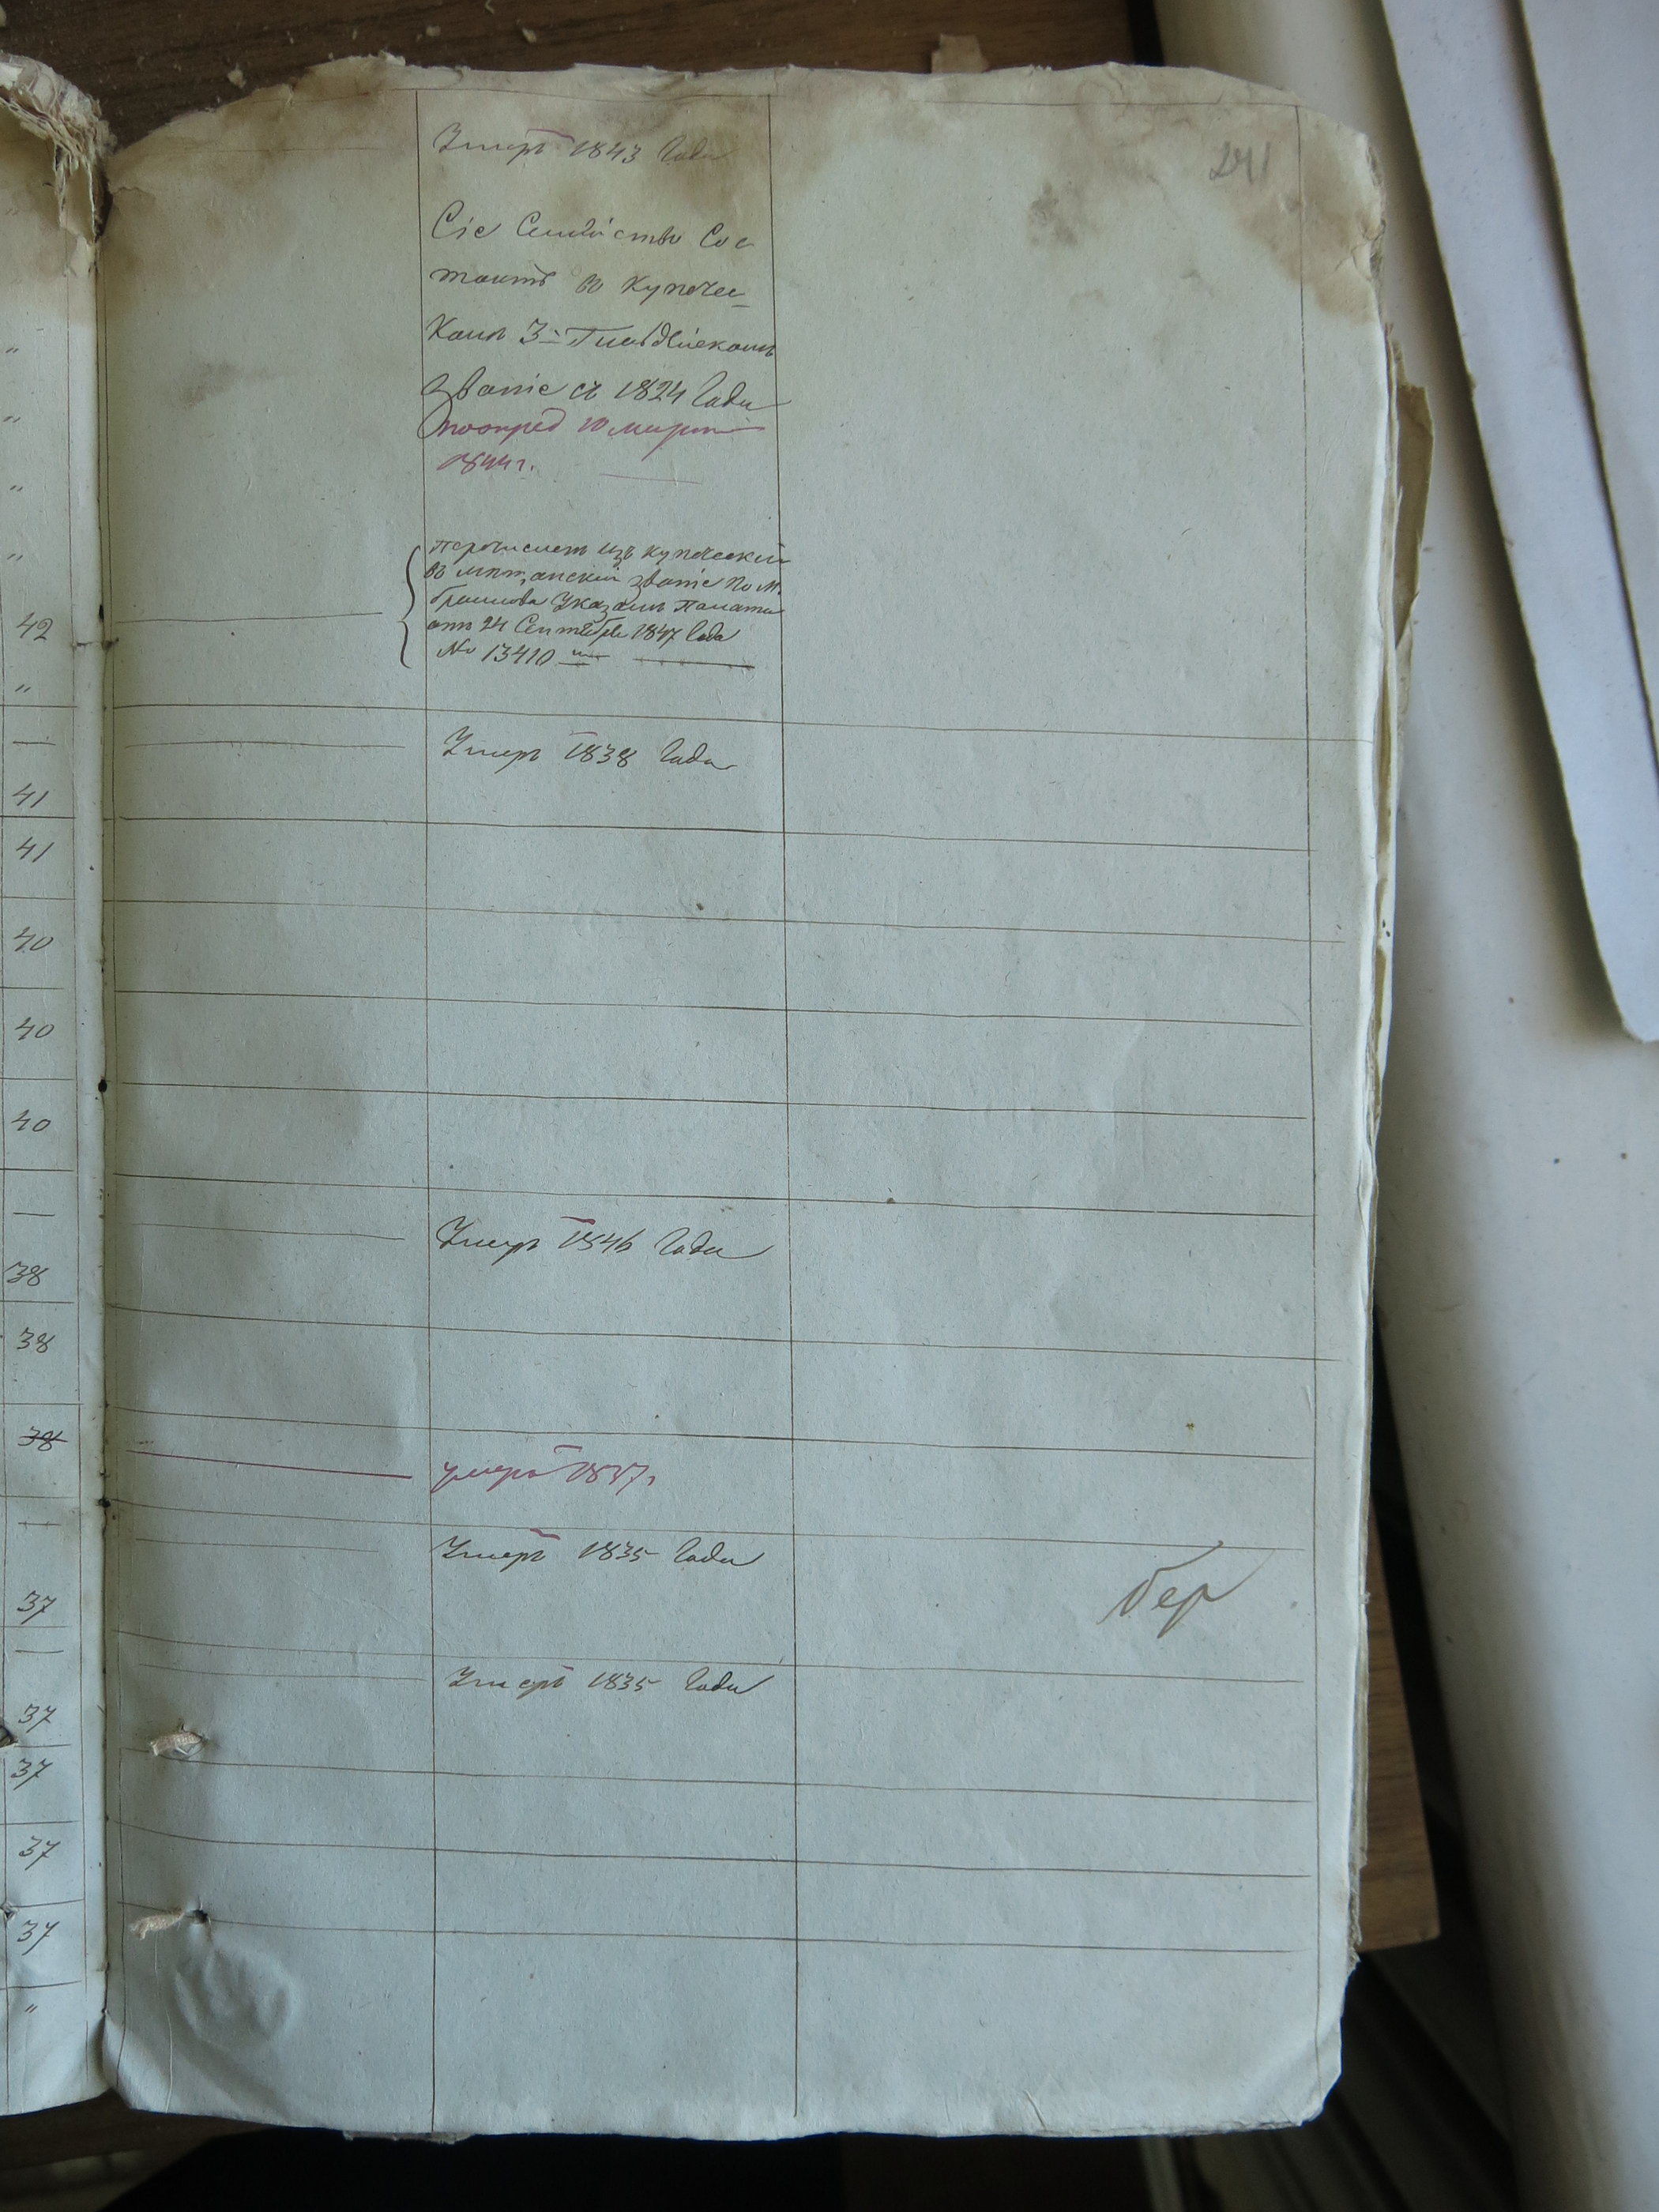 241
Умеръ 1843 Года
Сіе Семейство Сос
тоитъ въ Купечес
Комъ 3й Гильдейскомъ
званіе съ 1824 Года
1844 г.
перечисленъ изъ купеческой
въ мѣщанскій званіе По
Указомъ Палаты
отъ 24 Сентября 1847 Года
№ 13410м
42
Умеръ 1838 Года
41
41
40
40
40
Умеръ 1846 Года
38
38
38
умеръ 1837 г.
Умеръ 1835 Года
бер
37
Умеръ 1835 Года
37
37
37
37